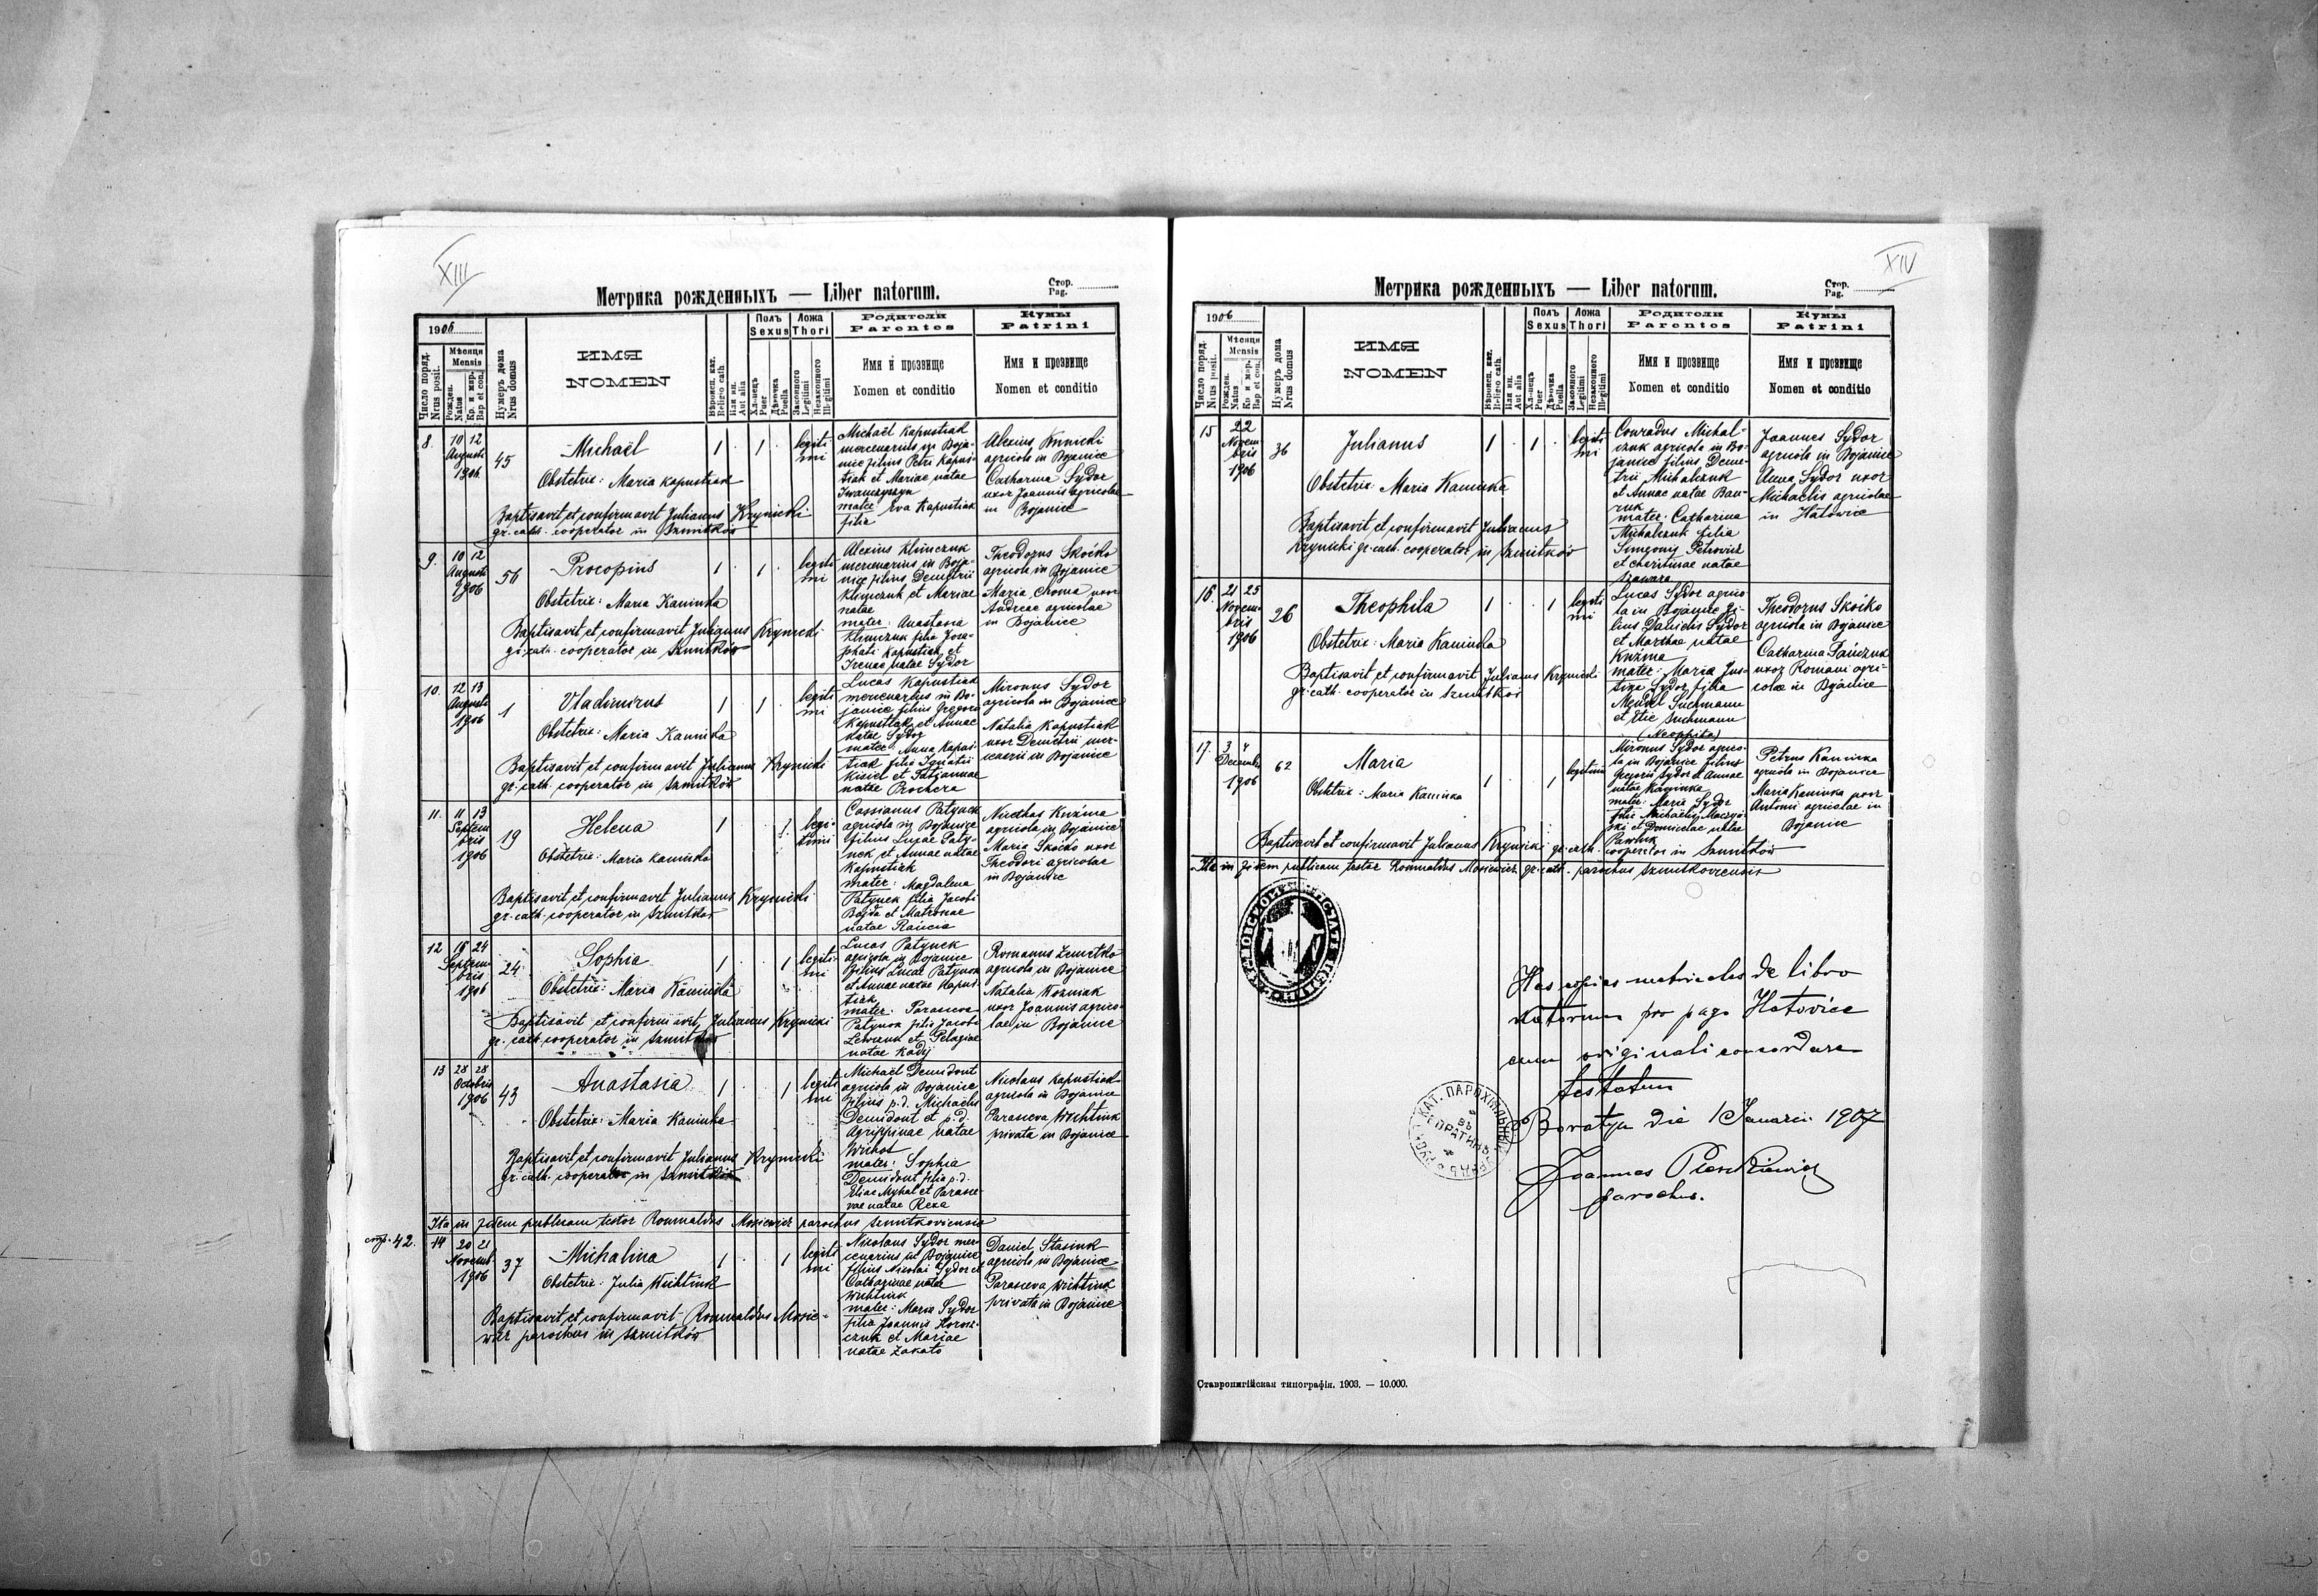 XIII
Метрика рожденныхъ — Liber natorum.
Стор.
Pag.
1906
Число поряд.
Nrus posit.
Мѣсяця
Mensis
Рожден.
Natus
Кр. и мир.
Bap et con.
Нумеръ дома
Nrus domus
ИМЯ
NOMEN
Вѣроисп. кат.
Religio cath.
Или ин.
Aut alia
Полъ
Sexus
Хл-пецъ
Puer
Дѣвочка
Puella
Ложа
Thori
Законного
Legitimi
Незаконного
Illegitimi
Родители
Parentes
Имя и прозвище
Nomen et conditio
Кумы
Patrini
Имя и прозвище
Nomen et conditio
8. 10 12
Augusti
1906
45
Michaël
1 · 1 ·
legiti
mi
Obstetrix: Maria Kapustiak
Baptisavit et confirmavit Julianus Krynicki
gr. cath. cooperator in Szmitków
Michaël Kapustiak
mercenarius in Boja-
nice filius Petri Kapus-
tiak et Mariae natae
Iwanczyszyn
mater Eva Kapustiak
filia
Alexius
agricola in Bojanice
Catharina Sydor
uxor Joannis agricolae
in Bojanice
9. 10 12
Augusti
1906
56
Procopius
1 · 1 ·
legiti
mi
Obstetrix: Maria Kaminka
Baptisavit et confirmavit Julianus Krynicki
gr. cath. cooperator in Szmitków
Alexius Klimczuk
mercenarius in Boja-
nice filius Demetrii
Klimczuk et Mariae
natae
mater: Anastasia
Klimczuk filia Josa-
phati Kapustiak et
Irenae natae Sydor
Theodorus Skoćko
agricola in Bojanice
Maria Choma uxor
Andreae agricolae
in Bojanice
10. 12 13
Augusti
1906
1
Vladimirus
1 · 1 ·
legiti
mi
Obstetrix: Maria Kaminka
Baptisavit et confirmavit Julianus Krynicki
gr. cath. cooperator in Szmitków
Lucas Kapustiak
mercenarius in Bo-
janice filius Gregorii
Kapustiak et Annae
natae Sydor
mater: Anna Kapus-
tiak filia Ignatii
Kisiel et Tatjannae
natae Prochera
Mironus Sydor
agricola in Bojanice
Natalia Kapustiak
uxor Demetrii mer-
cenarii in Bojanice
11. 11 13
Septem
bris
1906
19
Helena
1 · · 1
legi-
timi
Obstetrix: Maria Kaminka
Baptisavit et confirmavit Julianus Krynicki
gr. cath. cooperator in Szmitków
Cassianus Patynek
agricola in Bojanice
filius Lucae Paty-
nek et Annae natae
Kapustiak
mater: Magdalena
Patynek filia Jacobi
Bojda et Matronae
natae
Nicethas Kuźma
agricola in Bojanice
Maria Skoćko uxor
Theodori agricolae
in Bojanice
12 16 24
Septem-
bris
1906
24
Sophia
1 · · 1
legiti
mi
Obstetrix: Maria Kaminka
Baptisavit et confirmavit Julianus Krynicki
gr. cath. cooperator in Szmitków
Lucas Patynek
agricola in Bojanice
filius Lucae Patynek
et Annae natae Kapus-
tiak
mater: Parasceva
Patynek filia Jacobi
et Pelagiae
natae Kadij
Romanus Zmetko
agricola in Bojanice
Natalia Wozniak
uxor Joannis agrico-
lae in Bojanice
13 28 28
Octobris
1906
43
Anastasia
1 · · 1
legiti
mi
Obstetrix: Maria Kaminka
Baptisavit et confirmavit Julianus Krynicki
gr. cath. cooperator in Szmitków
Michaël Demidont
agricola in Bojanice
filius p. d. Michaelis
Demidont et p. d.
Agrippinae natae
mater: Sophia
Demidont filia p. d.
Eliae Myhal et Parasce-
vae natae Rexa
Nicolaus Kapustiak
agricola in Bojanice
Parasceva Wichtiuk
privata in Bojanice
Ita in fidem publicam testor Romualdus Mosiewicz parochus szmitkoviensis
стр. 42.
14 20 21
Novemb.
1906
37
Michalina
1 · · 1
legiti
mi
Obstetrix: Julia Wichtiuk
Baptisavit et confirmavit Romualdus Mosie-
wicz parochus in Szmitków
Nicolaus Sydor mer-
cenarius in Bojanice
filius Nicolai Sydor et
Catharinae natae
Wichtiuk
mater: Maria Sydor
filia Joannis Horosz-
czuk et Mariae
natae Zakato
Daniel Stasiuk
agricola in Bojanice
Parasceva Wichtiuk
privata in Bojanice
XIV
Метрика рожденныхъ — Liber natorum.
Стор.
Pag.
1906
Число поряд.
Nrus posit.
Мѣсяця
Mensis
Рожден.
Natus
Кр. и мир.
Bap et con.
Нумеръ дома
Nrus domus
ИМЯ
NOMEN
Вѣроисп. кат.
Religio cath.
Или ин.
Aut alia
Полъ
Sexus
Хл-пецъ
Puer
Дѣвочка
Puella
Ложа
Thori
Законного
Legitimi
Незаконного
Illegitimi
Родители
Parentes
Имя и прозвище
Nomen et conditio
Кумы
Patrini
Имя и прозвище
Nomen et conditio
15 22
Novem
bris
1906
36
Julianus
1 · 1 ·
legiti
mi
Obstetrix: Maria Kaminka
Baptisavit et confirmavit Julianus
Krynicki gr. cath. cooperator in Szmitków
Conradus Michal-
czuk agricola in Bo-
janice filius Deme-
trii Michalczuk
et Annae natae Ban-
ruk
mater: Catharina
Michalczuk filia
Simeonis Petrowicz
et Christinae natae
Szawara
Joannes Sydor
agricola in Bojanice
Anna Sydor uxor
Michaelis agricolae
in Hatowice
16. 21 25
Novem-
bris
1906
26
Theophila
1 · · 1
legiti
mi
Obstetrix: Maria Kaminka
Baptisavit et confirmavit Julianus Krynicki
gr. cath. cooperator in Szmitków
Lucas Sydor agrico-
la in Bojanice fi-
lius Danielis Sydor
et Marthae natae
Kuźma
mater: Maria Jus-
tina Sydor filia
Mendel Suchmann
et Etie Suchmann
(Neophita)
Theodorus Skoćko
agricola in Bojanice
Catharina Sańczuk
uxor Romani agri-
colae in Bojanice
17. 3 4
Decembris
1906
62
Maria
1 · 1
legitimi
Obstetrix: Maria Kaminka
Baptisavit et confirmavit Julianus Krynicki gr. cath. cooperator in Szmitków
Mironus Sydor agrico-
la in Bojanice filius
Gregorii Sydor et Annae
natae Kaminka
mater: Maria Sydor
filia Michaelis
et Domicelae natae
Pawluk
Petrus Kaminka
agricola in Bojanice
Maria Kaminka uxor
Antonii agricolae in
Bojanice
Ita in fidem publicam testor Romualdus Mosiewicz gr. cath. parochus szmitkoviensis
Has copias metricales de libro
natorum pro pago Hatowice
cum originali concordare
testatur
Boratyn die 1 Januarii 1907
Joannes Pieszkiewicz
parochus.
Ставропигійская типографія. 1903. — 10.000.